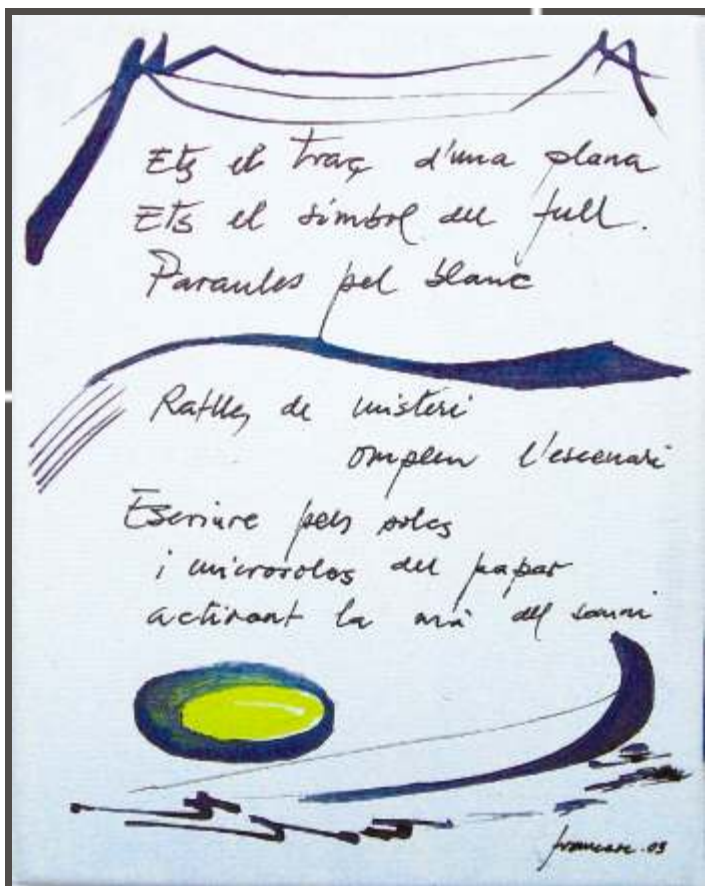 Ets el traç d'una plana
Ets el símbol del full.
Paraules pel blanc
Ratlles de misteri
omplen l'escenari
Escriure pels solcs
i microsolcs del paper
activant la mà del somni
francesc.03